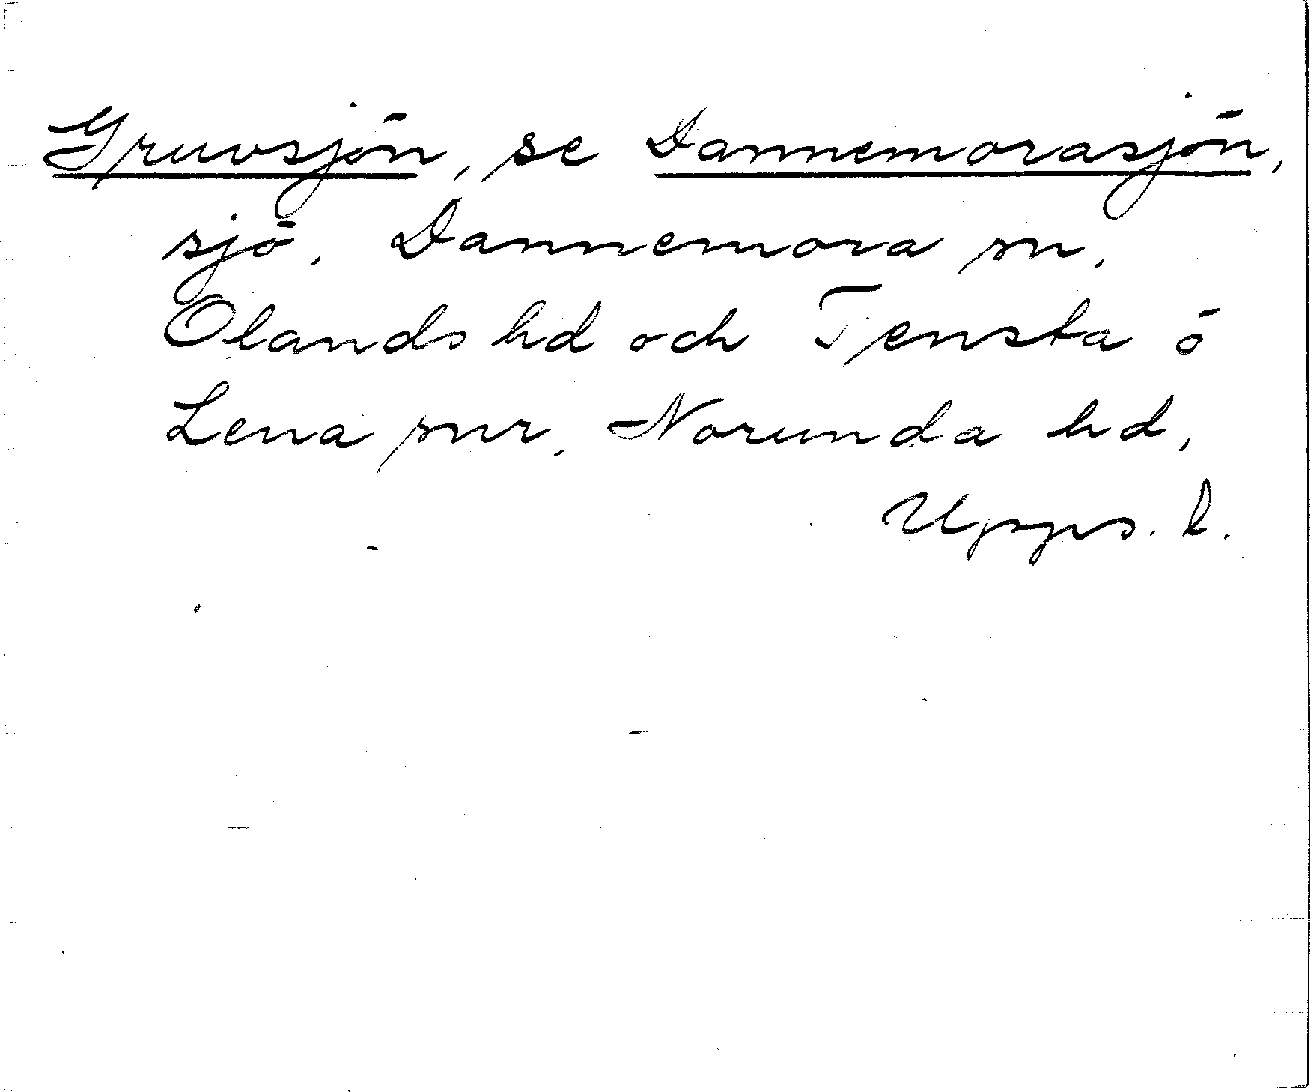 Gruvsjön, se Dannemorasjön,
sjö. Dannemora sn,
Olands hd och Tensta o
Lena snr, Norunda hd,
Upps. l.